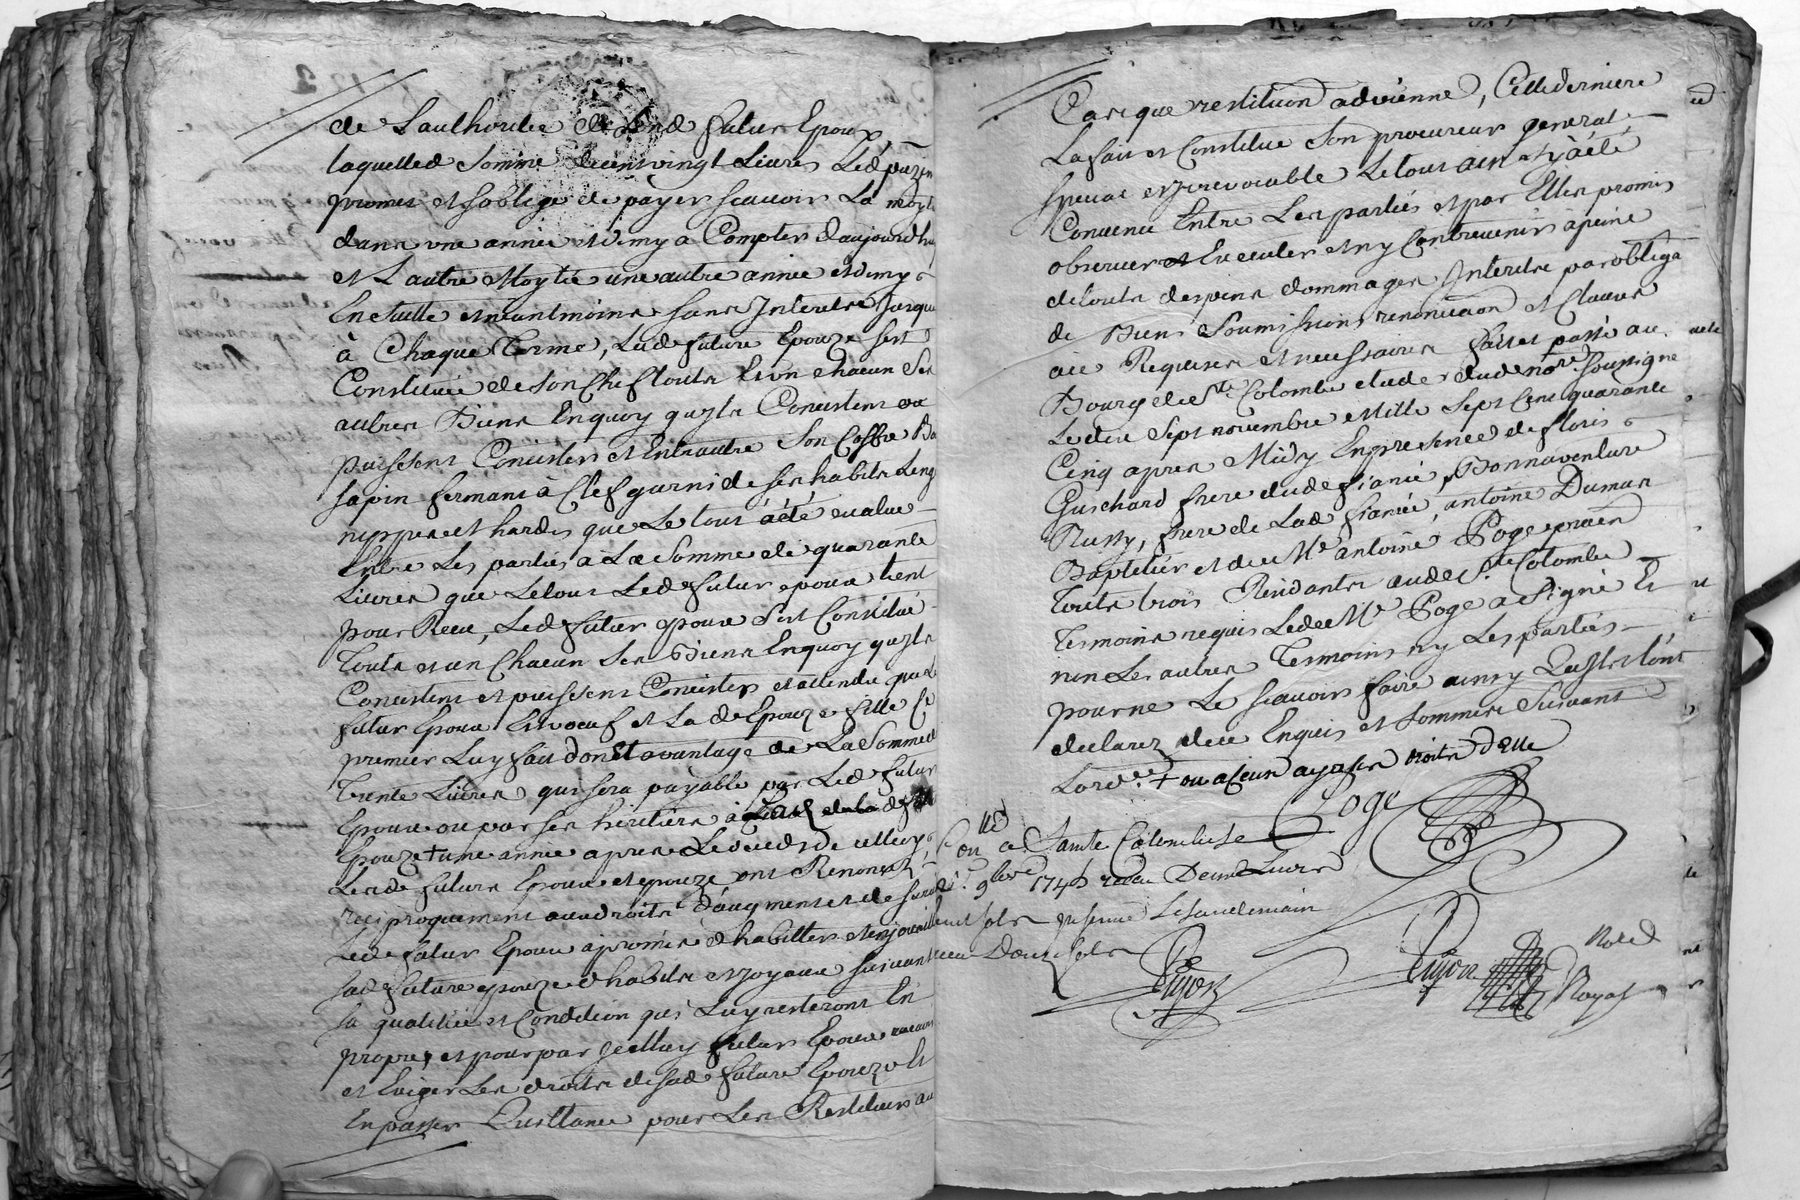 de Laulhoulie dud futur Epoux
laquelled Somme de cent vingt Livres Led puzin
promet et soblige de payer scavoir La moytié
dans une année et demy a Compter daujourdhuy
et Lautre Moytié une autre année et demy
En suitte et neantmoins sans Interetze Jusque
à Chaque Terme, Lade future Epouze sest
Constituée de son Chef touts et un chacun ses
autres Biens Enquoy quils Concistent ou
puissent Concister et Entrautre Son Coffre Bo
sapin fermant à Clef garni de ses habits Linge
nippes et hardes que Le tout a été evalué
Entre Les parties à La Somme de quarante
Livres que Letout Led futur epoux tient
pour Receu, Led futur epoux sest Constitué
Touts et un Chacun Ses Biens Enquoy quils
Concistent et puissent Concister et attendu que Le
futur Epoux Est voeuf et La de Epouze fille Le
premier Luy fait don et avantage de La Somme de
Trente Livres qui sera payable par Led futur
Epoux ou par ses heritiers à
Epouze + une année apres Le deceds de celluy
Lesde futurs Epoux et epouze ont Renoncé
reciproquement aux droits d'augment et de survie
Lede futur Epoux a promis dhabiller et enjoailler
sade future epouze dhabits et joyaux suivant
sa qualitée et Condition qui Luy resteront En
propre, et pour par jcelluy futur Epoux
et Exiger Les droits de sad future Epouze Et
En passer Quittance pour Les Restituer au
Cas que restituon advienne, Cette derniere
La fait et Constitue Son procureur general
special et jrrevocable Letout ainsy a été
Convenu Entre Les parties et par Elles promis
observer et Executer et ny Contrevenir a peine
de touts despens dommages Interetze par obliga
de Biens Soumissions renonciaon et Clauses
ace Requises et necessaires fait et passé au
Bourg de Ste Colombe etude dude nore Soussigné
Le dix Sept novembre Mille Sept Cent quarante
Cinq apres Midy En presence de floris
Guichard frere dude fiancé, Bonnaventure
Russy, frere de Lad fiancée, antoine Dumas
Baptelier et de Me antoine Poge praen
touts trois Residants aude Ste Colombe
Temoins requis Lede Me Poge a signé Et
non Les autres Temoins ny Les parties
pour ne Le scavoir faire ainsy Quils Lont
declarez de ce Enquis et Sommes Suivant
Lorde. + ou a ceux ayants droits d'Elle
Poge
Con a Sainte Colombe Le
9bre 1745 receu Deux Livres
huit sols
receu Douze sols
Pugon
Pugon
Noted
Royal